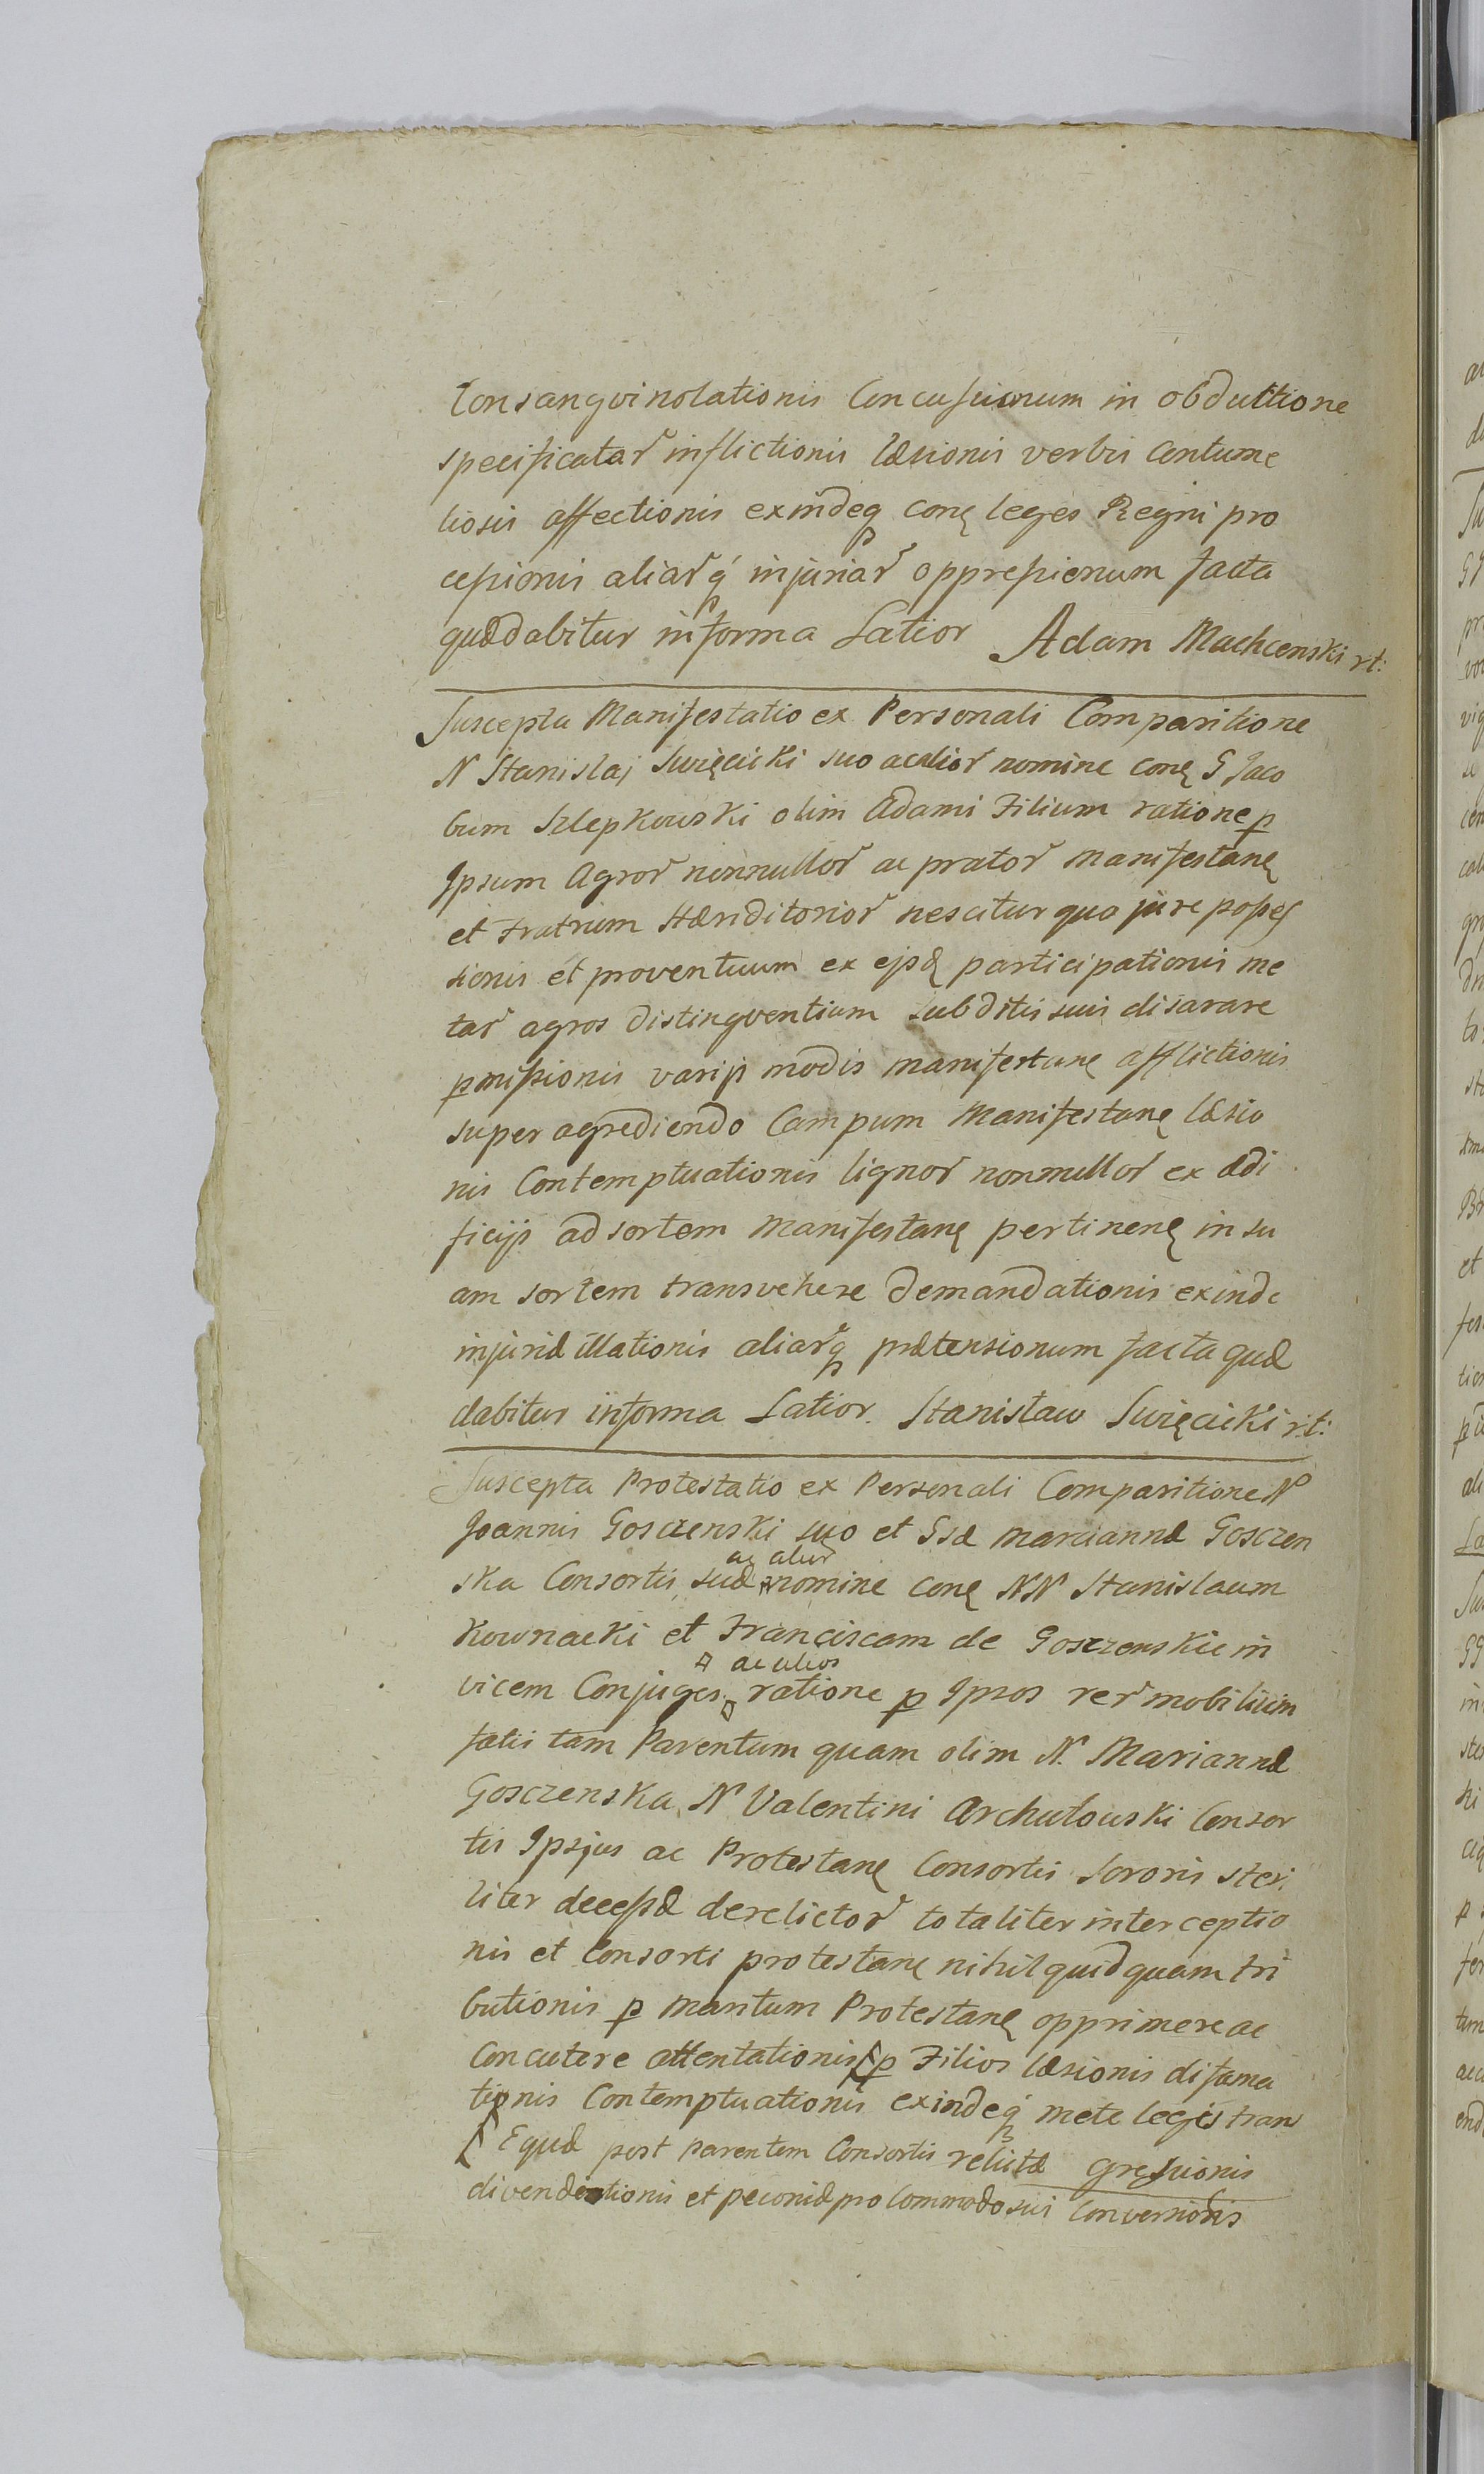 Consangvinolationis Concussionum in obductione
specificatar inflictionis læsionis verbis Contume
liosis affectionis exindeq conę leges Regni pro
cessionis aliarq injuriar oppressionum facta
quæ dabitur in forma Latior Adam Machcenski rt:
Suscepta Manifestatio ex Personali Comparitione
N Stanislaj Święcicki suo ac alior nomine conę G Jaco
bum Szlepkowski olim Adami Filium ratione p
Ipsum Agror nonnullor ac prator manifestanę
et Fratrum Hæriditorior nescitur quo jure posses
sionis et proventuum ex ejsdę participationis me
tar agros distingventium subditis suis disarare
pmissionis varijs modis manifestanę afflictionis
super agrediendo Campum Manifestanę læsio
nis Contemptuationis lignor nonnullor ex ædi
ficijs ad sortem Manifestanę pertinenę in su
am sortem transvehere demandationis exinde
injuriæ illationis aliarq prætensionum facta quæ
dabitur in forma Latior. Stanisław Święcicki rt:
Suscepta Protestatio ex Personali Comparitione N
Joannis Gosczenski suo et Gsæ Mariannæ Gosczen
ac alior
ska Consortis suæ nomine conę NN Stanislaum
Kownacki et Franciscam de Gosczenskie in
ac alios
vicem Conjuges ratione p Ipsos rer mobilium
fatis tam Parentum quam olim N. Mariannæ
Gosczenska N Valentini Archutowski Consor
tis Ipsjus ac Protestanę Consortis Sororis steri
liter decessæ derelictor totaliter interceptio
nis et Consorti protestanę nihil quidquam tri
butionis p maritum Protestanę opprimere ac
Concutere attentationis p Filios læsionis difama
tionis Contemptuationis exindeq mete legis trans
Equæ post parentem Consortis relictæ gressionis
divenditionis et pecuniæ pro Commodo sui Conversionis